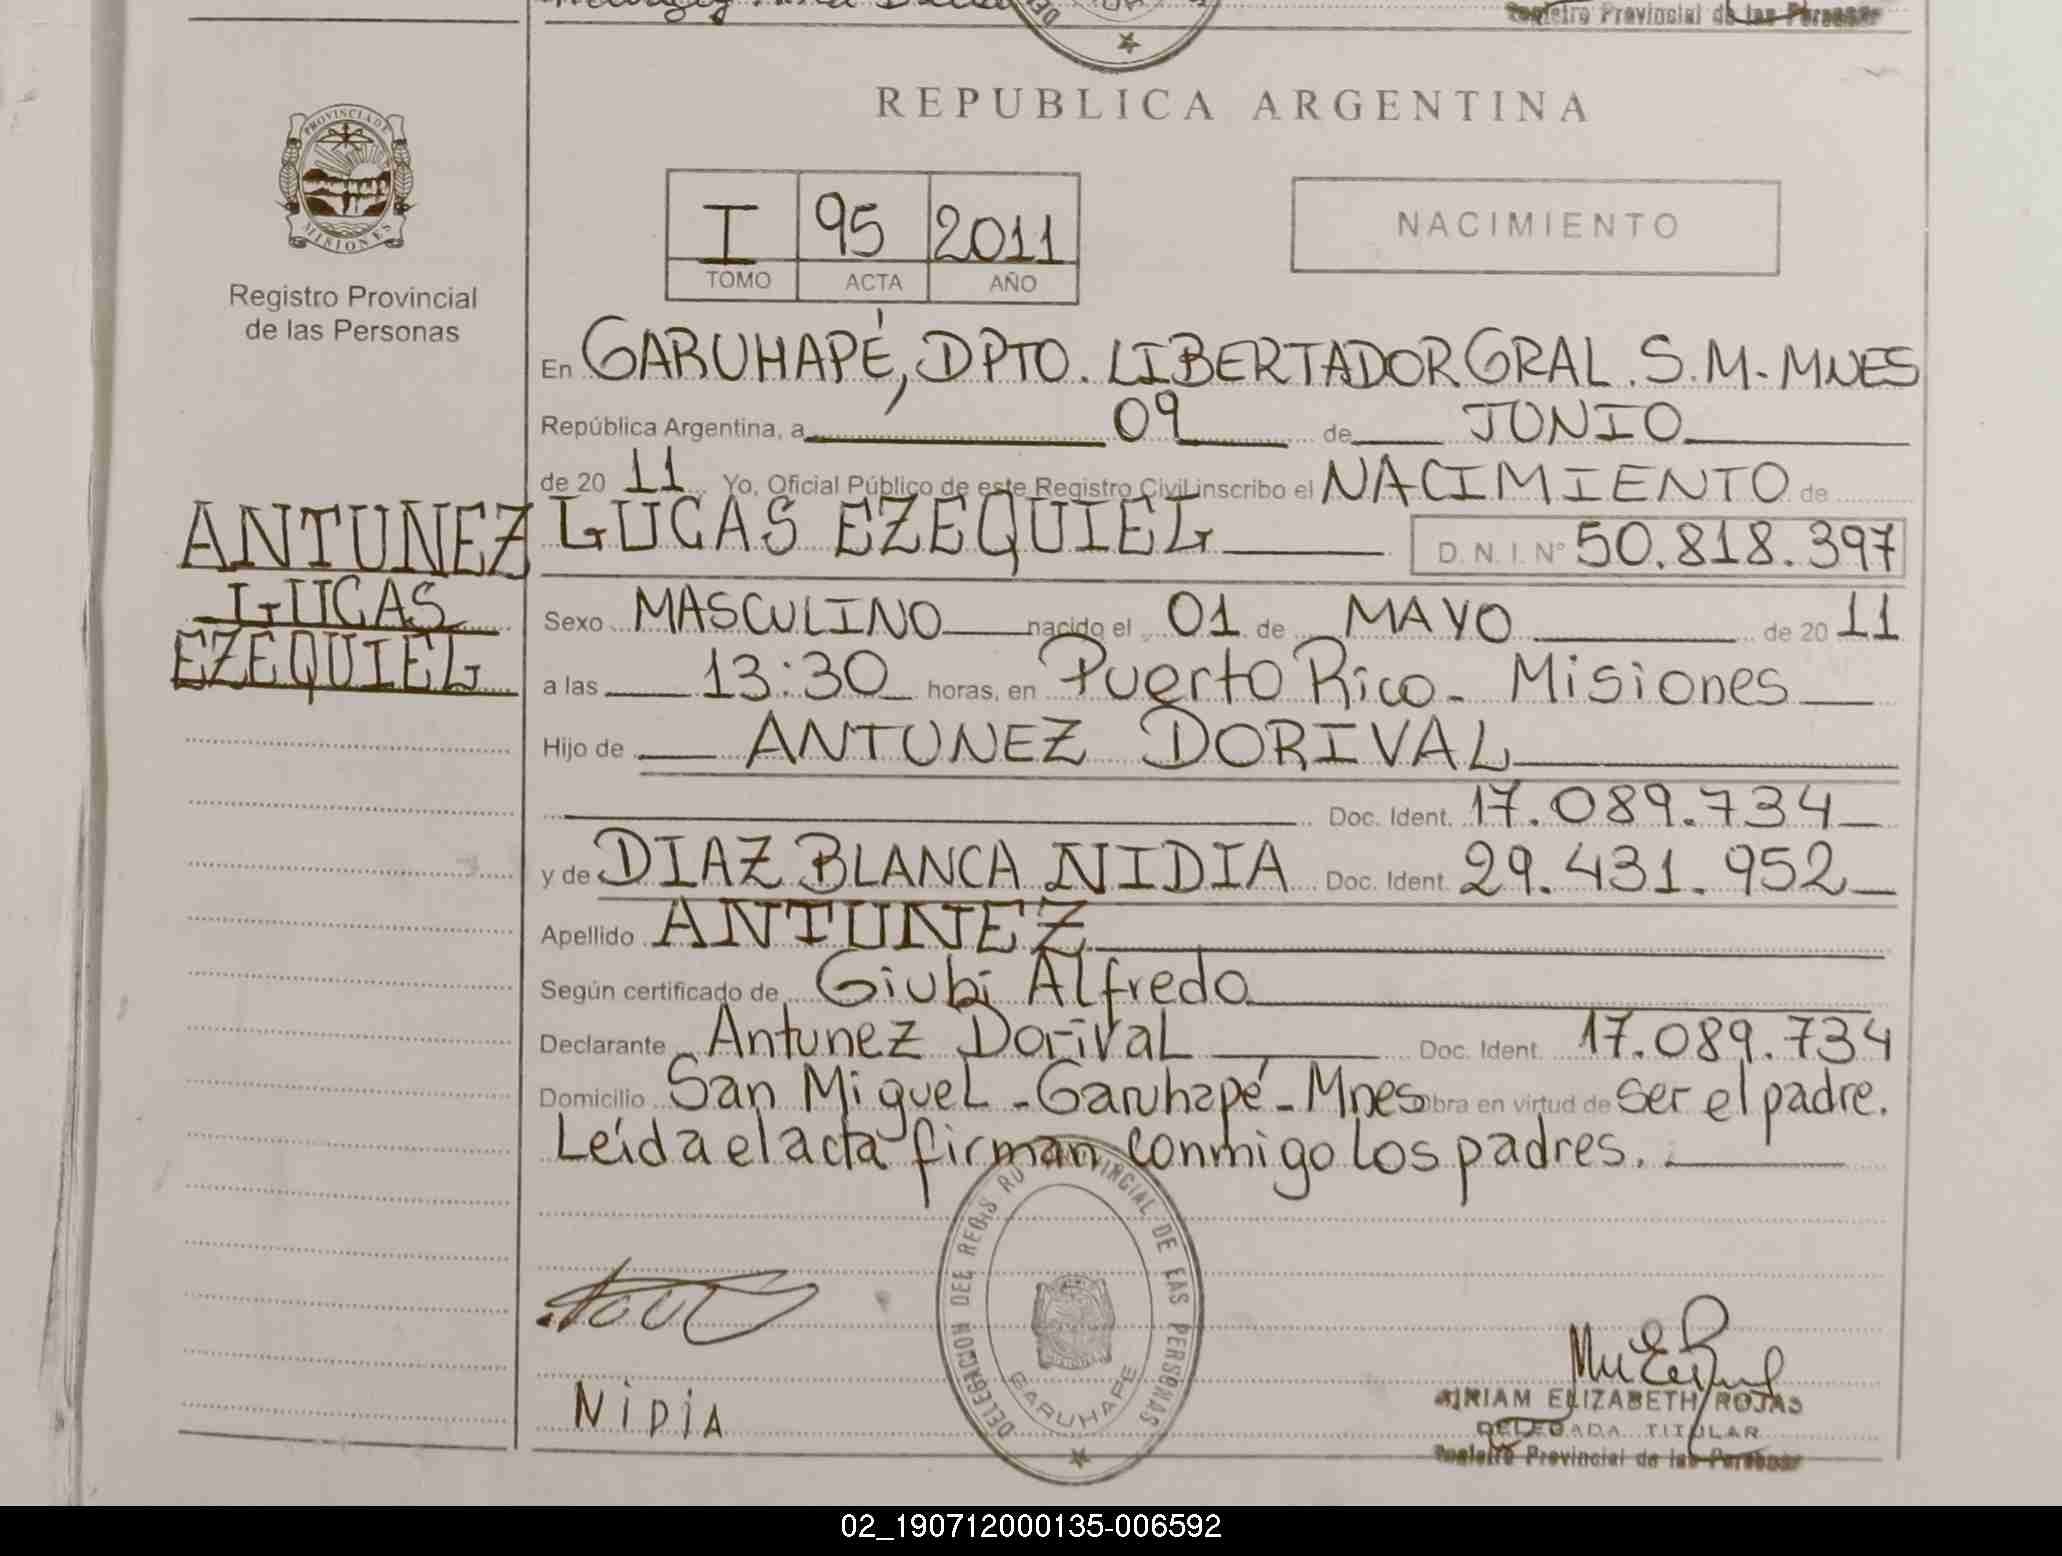 Registro Provincial de las Personas
REPUBLICA ARGENTINA
PROVINCIA DE
MISIONES
Registro Provincial
de las Personas
I 95 2011
TOMO ACTA AÑO
NACIMIENTO
En GARUHAPÉ, DPTO. LIBERTADOR GRAL. S.M.-MNES
República Argentina, a 09 de JUNIO
de 20 11 Yo, Oficial Público de este Registro Civil inscribo el NACIMIENTO de
ANTUNEZ
LUCAS
EZEQUIEL
LUCAS EZEQUIEL D.N.I. Nº 50.818.397
Sexo MASCULINO nacido el 01 de MAYO de 20 11
a las 13:30 horas, en Puerto Rico - Misiones
Hijo de ANTUNEZ DORIVAL
Doc. Ident. 17.089.734
y de DIAZ BLANCA NIDIA Doc. Ident. 29.431.952
Apellido ANTUNEZ
Según certificado de Giubi Alfredo
Declarante Antunez Dorival Doc. Ident. 17.089.734
Domicilio San Miguel - Garuhapé - Mnes obra en virtud de ser el padre.
Leída el acta firman conmigo los padres.
DELEGACION DEL REGIS RO PROVINCIAL DE LAS PERSONAS
GARUHAPE
NIDIA
MIRIAM ELIZABETH ROJAS
DELEGADA TITULAR
Registro Provincial de las Personas
02_190712000135-006592